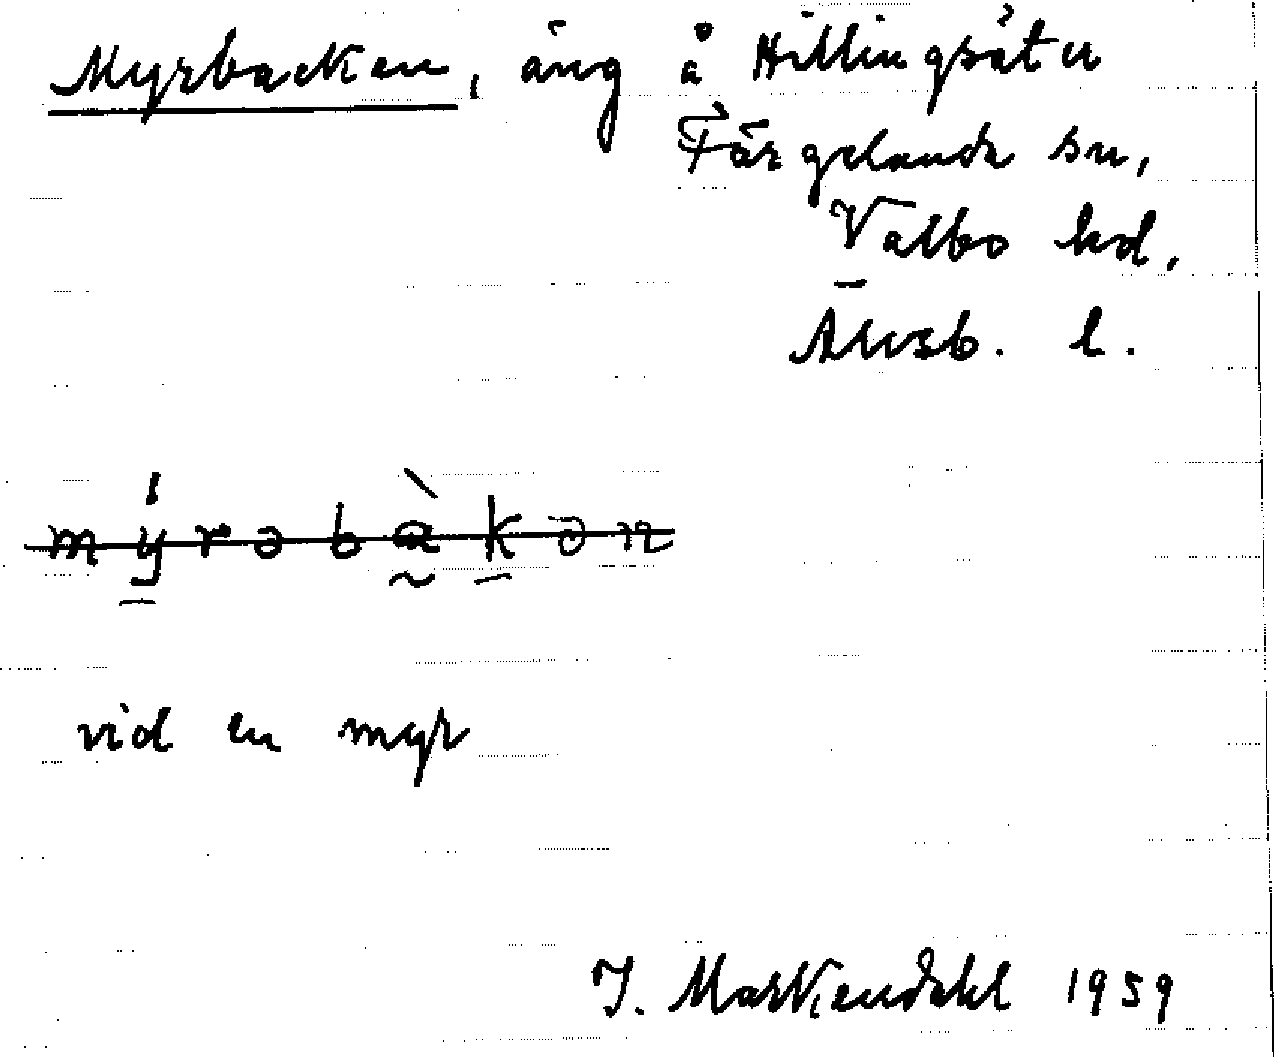 Myrbacken, äng å Hillingsäter
Färgelanda sn,
Valbo hd,
Älvsb. l.
mýrəbàkən
vid en myr
J. Markendahl 1959